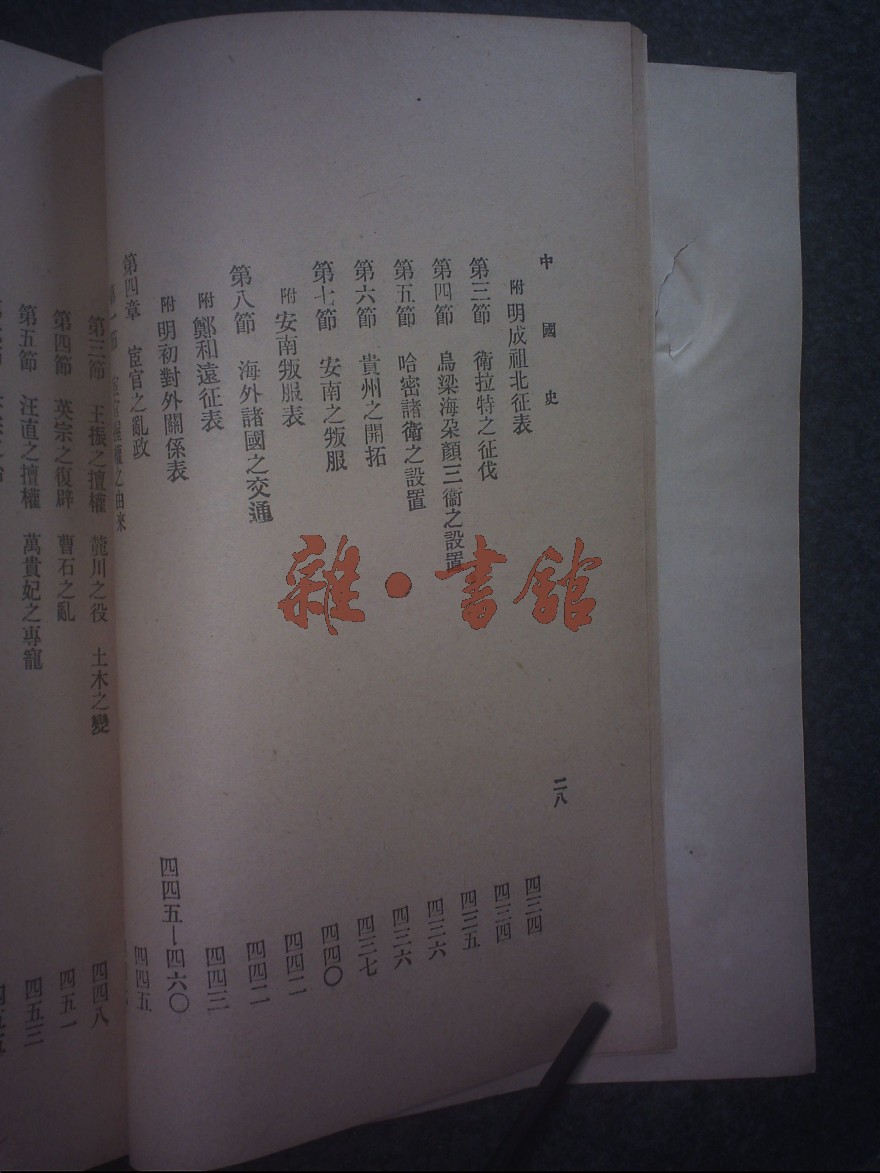 中國史 二八
附 明成祖北征表 四三四
第三節 衛拉特之征伐 四三四
第四節 烏梁海朶顏三衞之設置 四三五
第五節 哈密諸衛之設置 四三六
第六節 貴州之開拓 四三六
第七節 安南之叛服 四三七
附 安南叛服表 四四〇
第八節 海外諸國之交通 四四二
附 鄭和遠征表 四四二
附 明初對外關係表 四四三
第四章 宦官之亂政 四四五—四六〇
第一節 宦官握權之由來 四四五
第三節 王振之擅權 麓川之役 土木之變 四四八
第四節 英宗之復辟 曹石之亂 四五一
第五節 汪直之擅權 萬貴妃之專寵 四五三
雜·書館